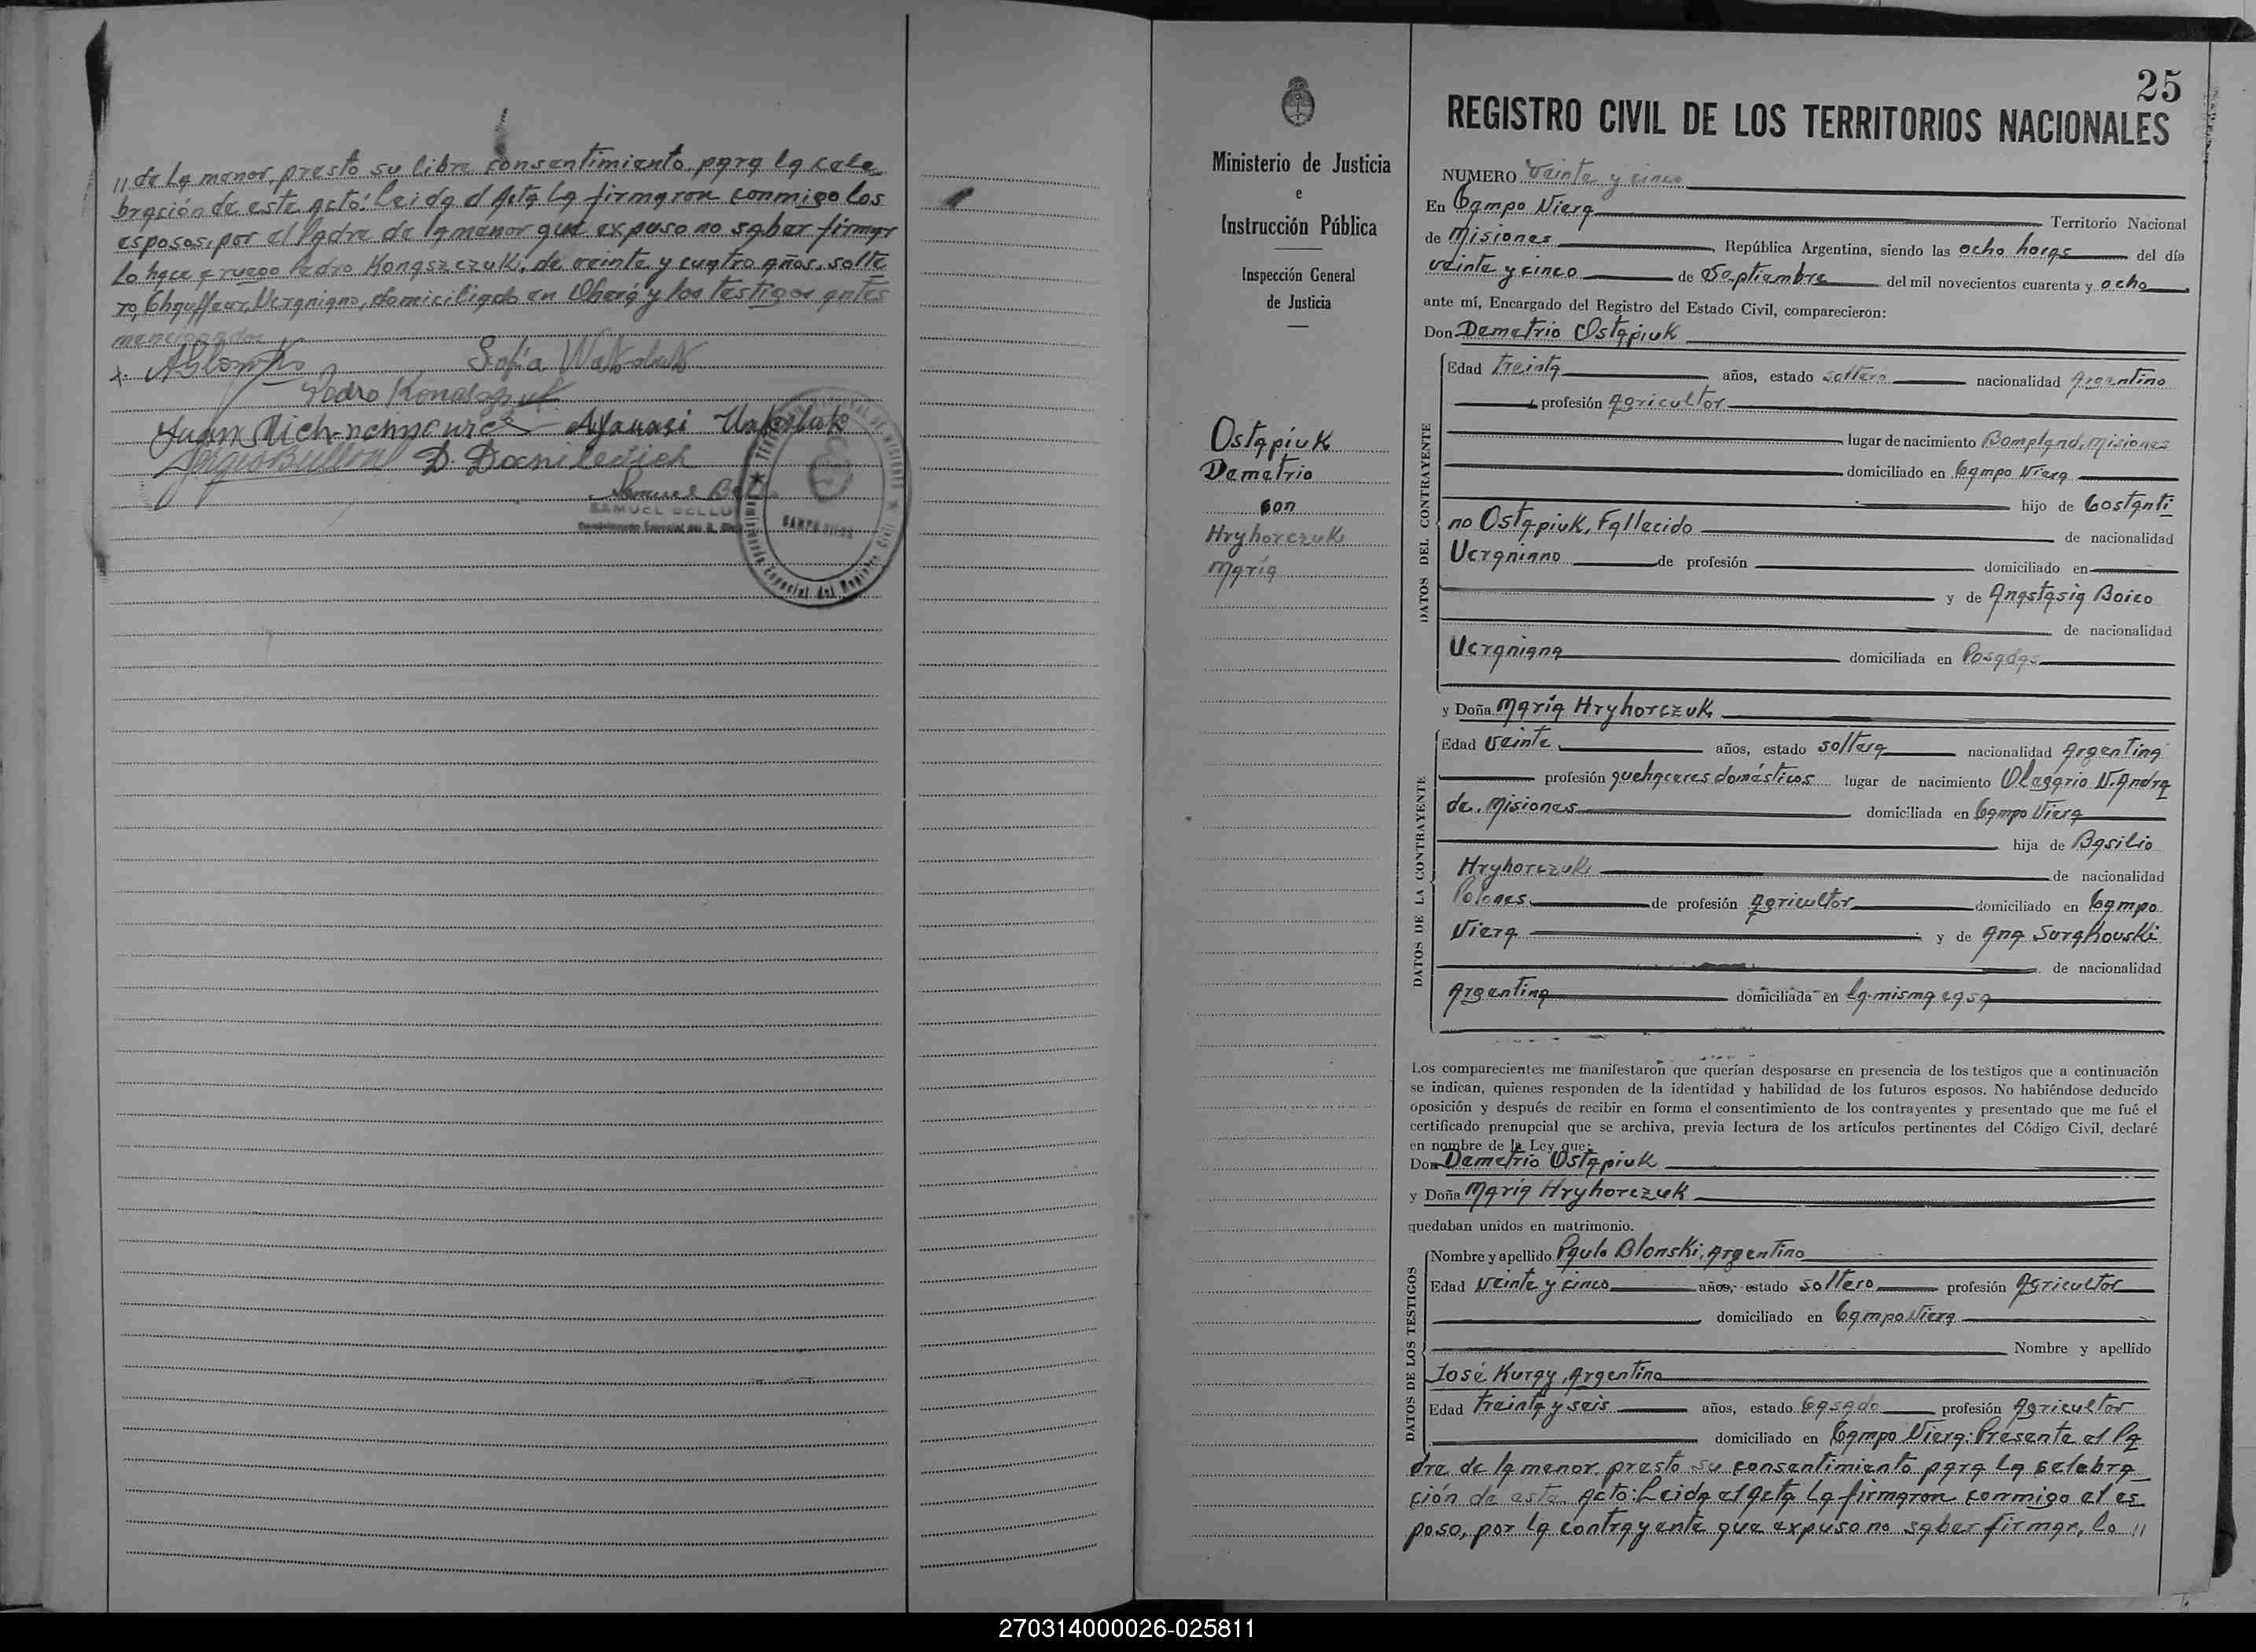 // de la menor, presto su libre consentimiento para la cele
bración de este acto: Leida el Acta la firmaron conmigo los
esposos, por el Padre de la menor que expuso no saber firmar
lo hace a ruego Pedro Konaszczuk, de veinte y cuatro años, solte
ro, Chauffeur, Ucraniano, domiciliado en Oberá y los testigos antes
mencionados
Sofia
Pedro
Juan
D. Danilevich
SAMUEL BELLO
25
REGISTRO CIVIL DE LOS TERRITORIOS NACIONALES
Ministerio de Justicia
e
Instrucción Pública
Inspección General
de Justicia
Ostapiuk
Demetrio
con
Hryhorczuk
María
NUMERO Veinte y cinco
En Campo Viera Territorio Nacional
de Misiones, República Argentina, siendo las ocho horas del día
veinte y cinco de Septiembre del mil novecientos cuarenta y ocho
ante mí, Encargado del Registro del Estado Civil, comparecieron:
Don Demetrio Ostapiuk
DATOS DEL CONTRAYENTE
Edad treinta años, estado soltero nacionalidad Argentino
profesión Agricultor
lugar de nacimiento Bompland, Misiones
domiciliado en Campo Viera
hijo de Costanti
no Ostapiuk, Fallecido de nacionalidad
Ucraniano de profesión domiciliado en
y de Anastasia Boico
de nacionalidad
Ucraniana domiciliada en Posadas
y Doña María Hryhorczuk
DATOS DE LA CONTRAYENTE
Edad veinte años, estado soltera nacionalidad Argentina
profesión quehaceres domésticos lugar de nacimiento Olegario V. Andra
de, Misiones domiciliada en Campo Viera
hija de Basilio
Hryhorczuk de nacionalidad
Polones de profesión Agricultor domiciliado en Campo
Viera y de Ana Surakouski
de nacionalidad
Argentina domiciliada en la misma casa
Los comparecientes me manifestaron que querían desposarse en presencia de los testigos que a continuación
se indican, quienes responden de la identidad y habilidad de los futuros esposos. No habiéndose deducido
oposición y después de recibir en forma el consentimiento de los contrayentes y presentado que me fué el
certificado prenupcial que se archiva, previa lectura de los artículos pertinentes del Código Civil, declaré
en nombre de la Ley que:
Don Demetrio Ostapiuk
y Doña María Hryhorczuk
quedaban unidos en matrimonio.
DATOS DE LOS TESTIGOS
Nombre y apellido Paulo Blonski, Argentino
Edad veinte y cinco años, estado soltero profesión Agricultor
domiciliado en Campo Viera
Nombre y apellido
José Kuray, Argentino
Edad treinta y seis años, estado Casado profesión Agricultor
domiciliado en Campo Viera: Presente el Pa
dre de la menor presto su consentimiento para la celebra
ción de este Acto: Leida el Acta la firmaron conmigo el es
poso, por la contrayente que expuso no saber firmar, lo //
270314000026-025811